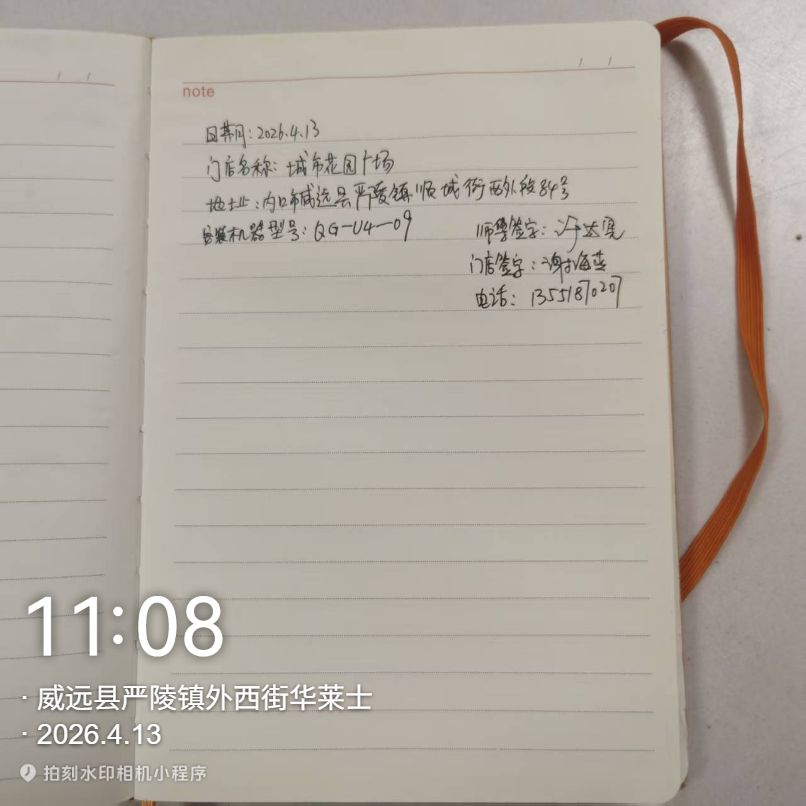 note
日期:2026.4.13
门店名称:城市花园广场
地址:内江市威远县严陵镇顺城街西外段84号
安装机器型号:QG-U4-09
师傅签字:
门店签字:谢海燕
电话:13551870207
11:08
· 威远县严陵镇外西街华莱士
· 2026.4.13
拍刻水印相机小程序